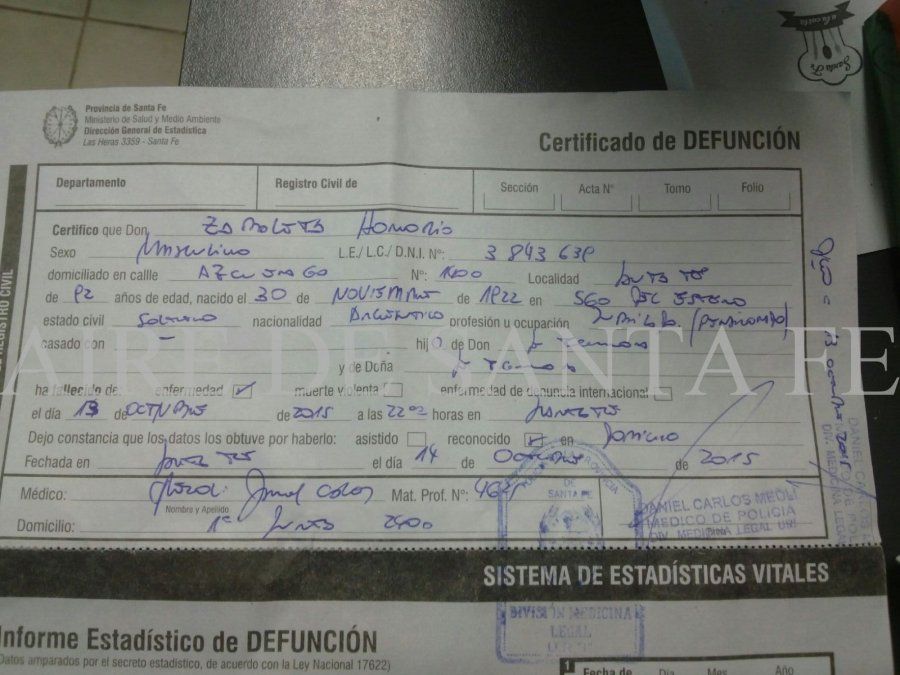 a la carta
Santa Fe
Provincia de Santa Fe
Ministerio de Salud y Medio Ambiente
Dirección General de Estadística
Las Heras 3359 - Santa Fe
Certificado de DEFUNCIÓN
Departamento
Registro Civil de
Sección Acta N° Tomo Folio
Certifico que Don ZABALETA Honorio
Sexo Masculino L.E./ L.C./ D.N.I. N°: 3 843 639
domiciliado en callle AZCUENAGA N°: Localidad SANTA FE
de 92 años de edad, nacido el 30 de NOVIEMBRE de 1922 en SGO DEL ESTERO
estado civil Soltero nacionalidad ARGENTINO profesión y ocupación (PENSIONADO)
casado con — hijo de Don
y de Doña
ha fallecido de: enfermedad muerte violenta enfermedad de denuncia internacional
el día 13 de OCTUBRE de 2015 a las 22 horas en SANTA FE
Dejo constancia que los datos los obtuve por haberlo: asistido reconocido en Domicilio
Fechada en SANTA FE el día 14 de Octubre de 2015
Médico: Meoli Daniel Carlos Mat. Prof. N°:
Nombre y Apellido
Domicilio: 1ª Junta
DANIEL CARLOS MEOLI
MEDICO DE POLICIA
DIV. MEDICINA LEGAL
Firma
PROVINCIA
DE
SANTA FE
DIVISIÓN MEDICINA
LEGAL
REGISTRO CIVIL
AIRE DE SANTA FE
SISTEMA DE ESTADÍSTICAS VITALES
Informe Estadístico de DEFUNCIÓN
Datos amparados por el secreto estadístico, de acuerdo con la Ley Nacional 17622)
1 Fecha de Día Mes Año